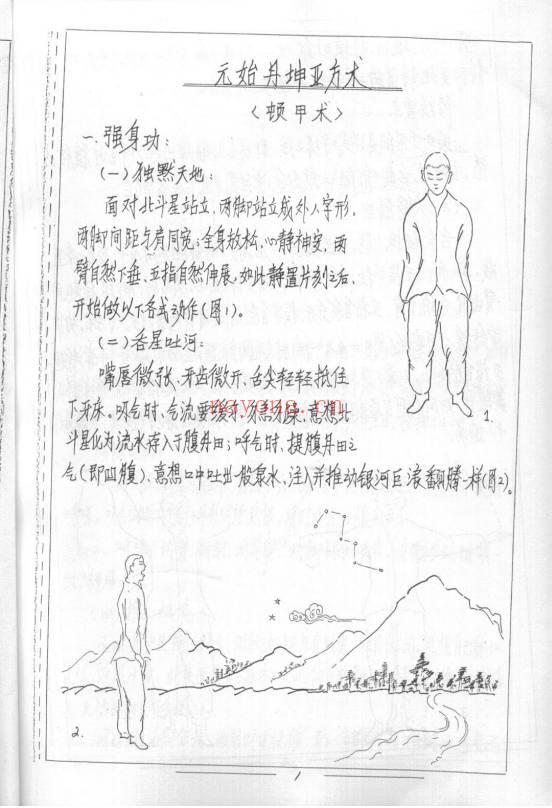 元始丹坤亚方术
〈顿甲术〉
一.强身功:
(一)独默天地:
面对北斗星站立,两脚站立成外八字形,
两脚间距与肩同宽;全身放松,心静神安,两
臂自然下垂,五指自然伸展,如此静置片刻之后,
开始做以下各式动作(图1)。
(二)吞星吐河:
嘴唇微张、牙齿微开,舌尖轻轻抵住
下牙床。吸气时,气流要缓,意想北
斗星化为流水存入于腹丹田;呼气时,提腹丹田之
气(即凹腹)、意想口中吐出一般泉水、注入并推动银河巨浪翻腾一样(图2)。
nayona.cn
1
2.
1